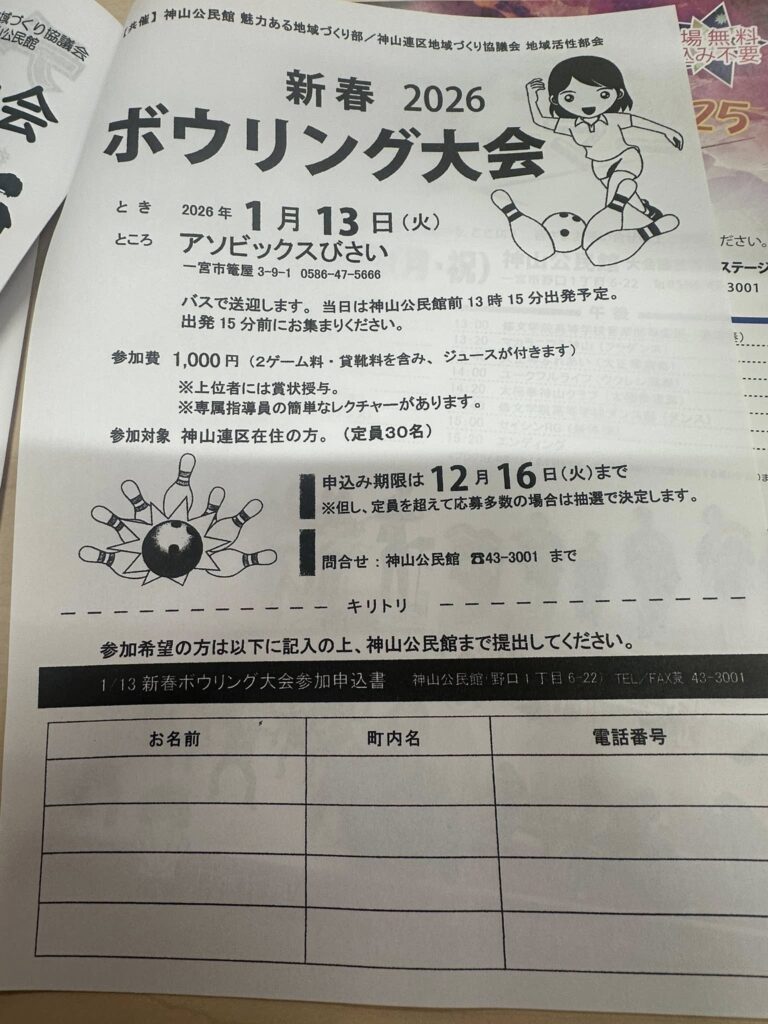 【共催】神山公民館 魅力ある地域づくり部／神山連区地域づくり協議会 地域活性部会
新春 2026
ボウリング大会
とき 2026年 1月13日（火）
ところ アソビックスびさい
一宮市篭屋 3-9-1 0586-47-5666
バスで送迎します。当日は神山公民館前 13 時 15 分出発予定。
出発 15 分前にお集まりください。
参加費 1,000円（２ゲーム料・貸靴料を含み、ジュースが付きます）
※上位者には賞状授与。
※専属指導員の簡単なレクチャーがあります。
参加対象 神山連区在住の方。（定員３０名）
申込み期限は 12月16日（火）まで
※但し、定員を超えて応募多数の場合は抽選で決定します。
問合せ：神山公民館 ☎43-3001 まで
キリトリ
参加希望の方は以下に記入の上、神山公民館まで提出してください。
1/13 新春ボウリング大会参加申込書 神山公民館（野口１丁目 6-22） TEL／FAX兼 43-3001
お名前 町内名 電話番号
づくり協議会
公民館
会
場無料
込み不要
25
ださい。
ステージ
3001